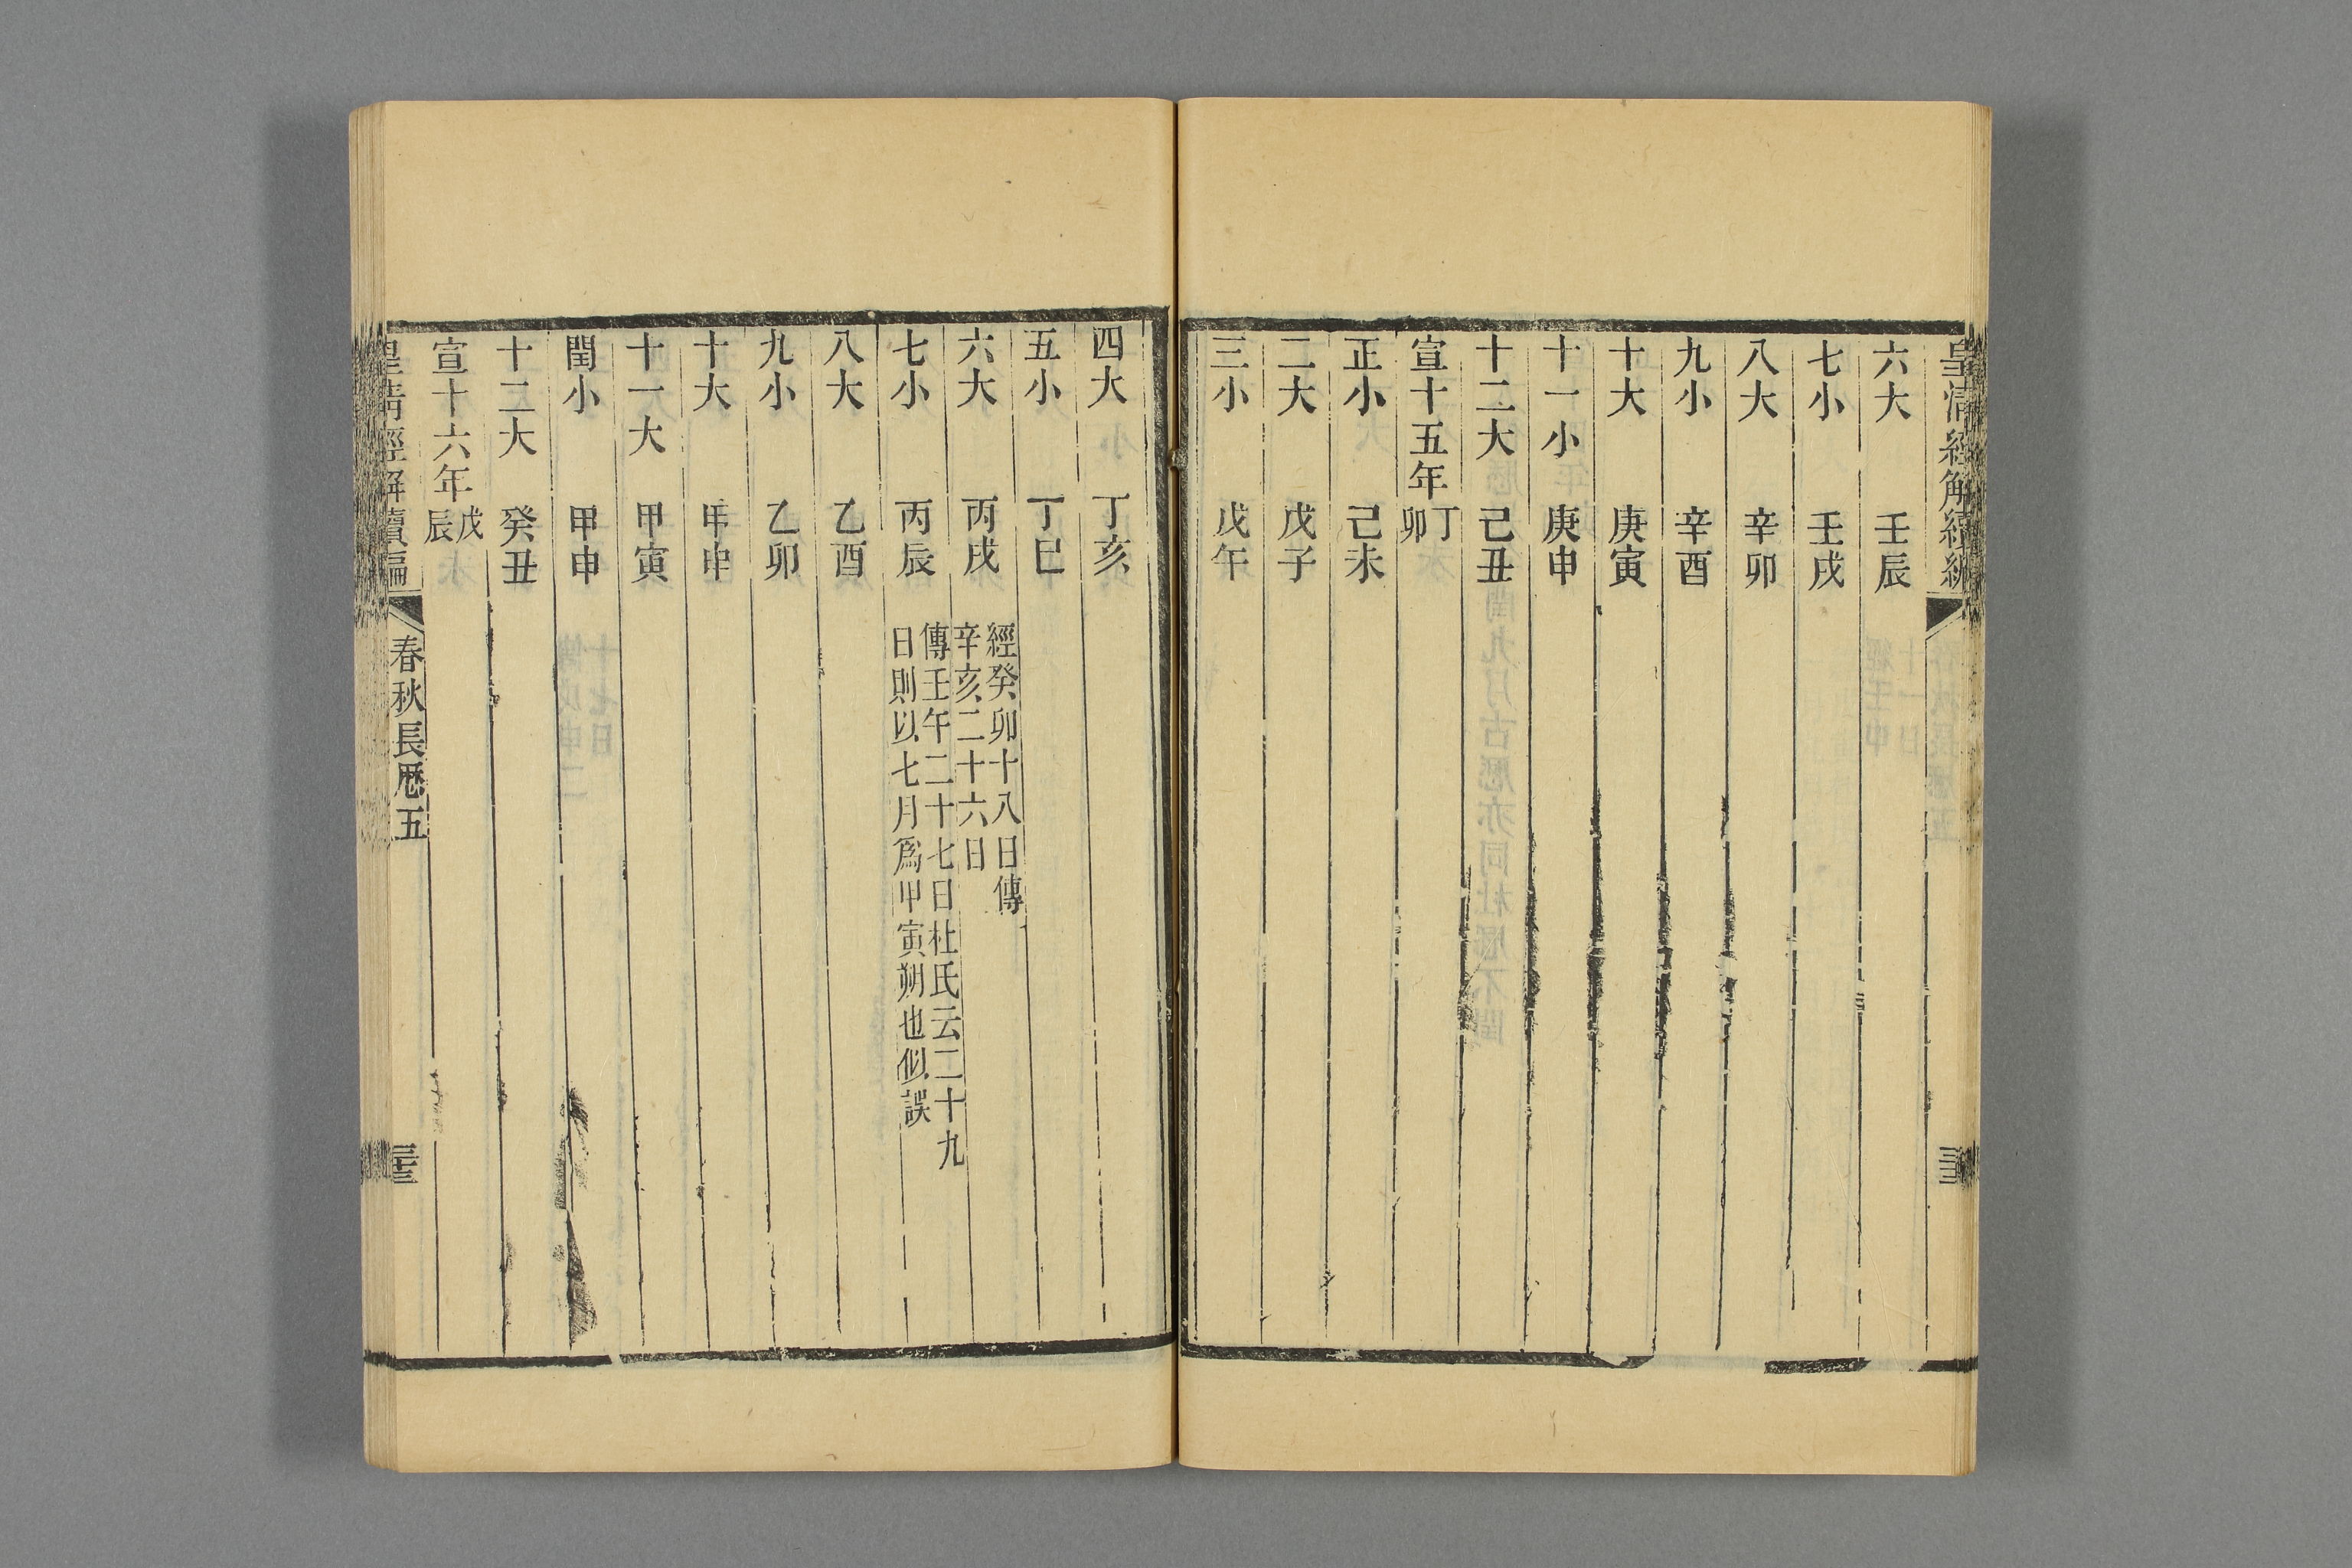 皇清經解續編
六大 壬辰
七小 壬戌
八大 辛卯
九小 辛酉
十大 庚寅
十一小 庚申
十二大 己丑
宣十五年丁卯
正小 己未
二大 戊子
三小 戊午
四大 丁亥
五小 丁巳
六大 丙戌 經癸卯十八日傳
辛亥二十六日
七小 丙辰 傳壬午二十七日杜氏云二十九
日則以七月爲甲寅朔也似誤
八大 乙酉
九小 乙卯
十大 甲申
十一大 甲寅
閏小 甲申
十二大 癸丑
宣十六年戊辰
皇淸經解續編
春秋長厯五